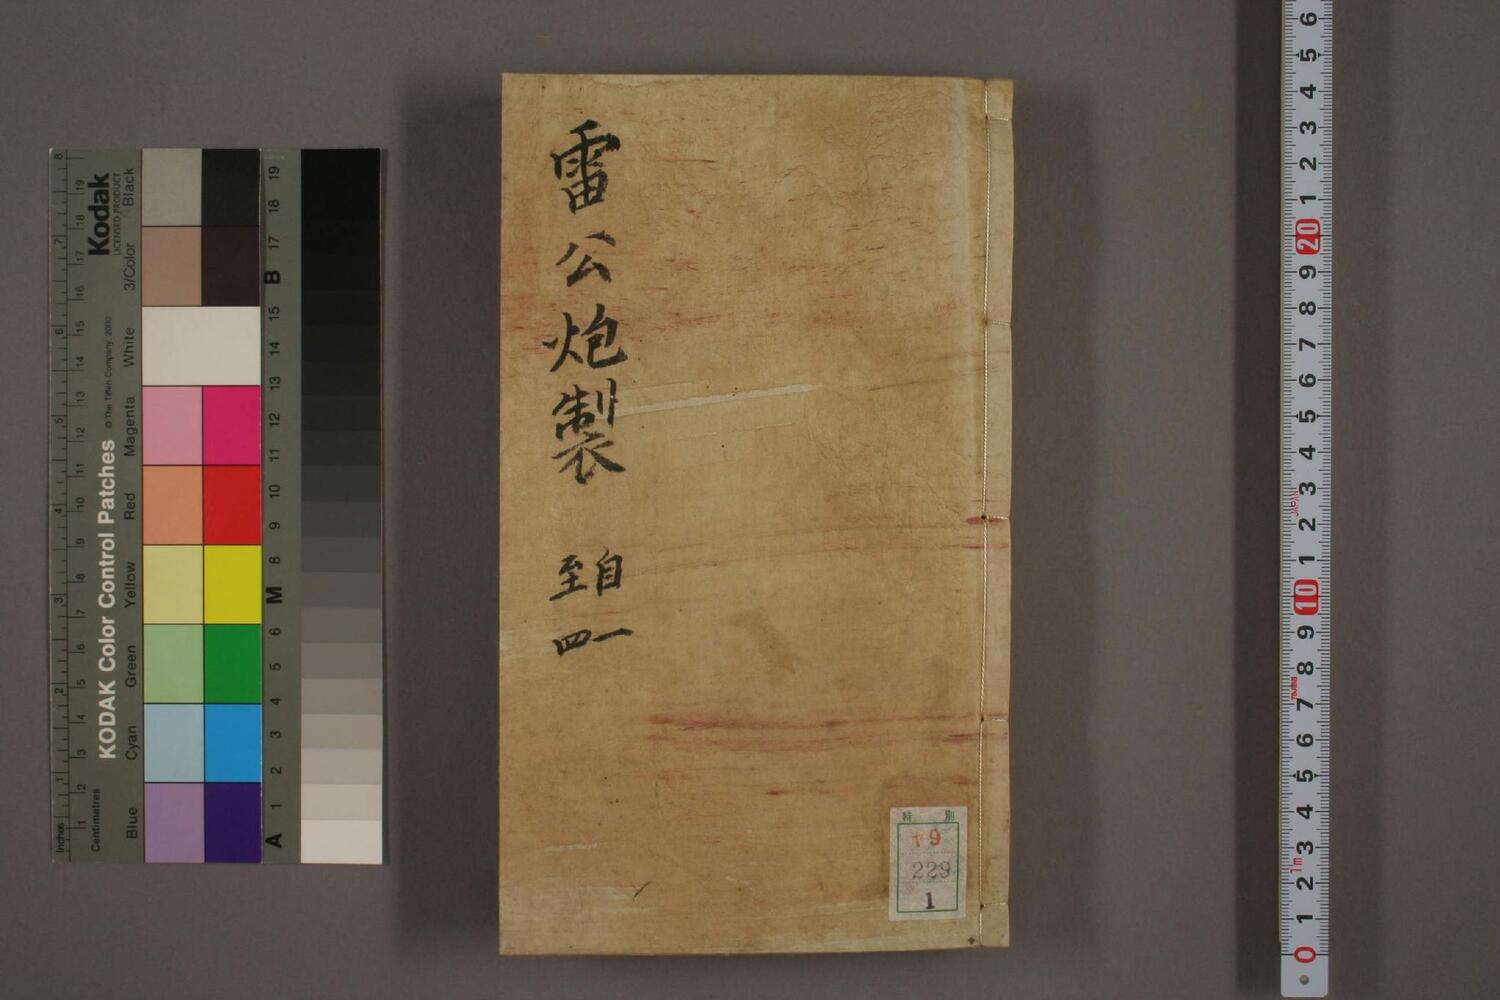 雷公炮製
自一
至四
特別
ヤ9
229
1
Kodak
LICENSED PRODUCT
KODAK Color Control Patches
© The Tiffen Company, 2000
Inches
Centimetres
Blue
Cyan
Green
Yellow
Red
Magenta
White
3/Color
Black
1 2 3 4 5 6 7 8
1 2 3 4 5 6 7 8 9 10 11 12 13 14 15 16 17 18 19
A 1 2 3 4 5 6 M 8 9 10 11 12 13 14 15 B 17 18 19
0 1 2 3 4 5 6 7 8 9 10 1 2 3 4 5 6 7 8 9 20 1 2 3 4 5 6
1m
JAPAN